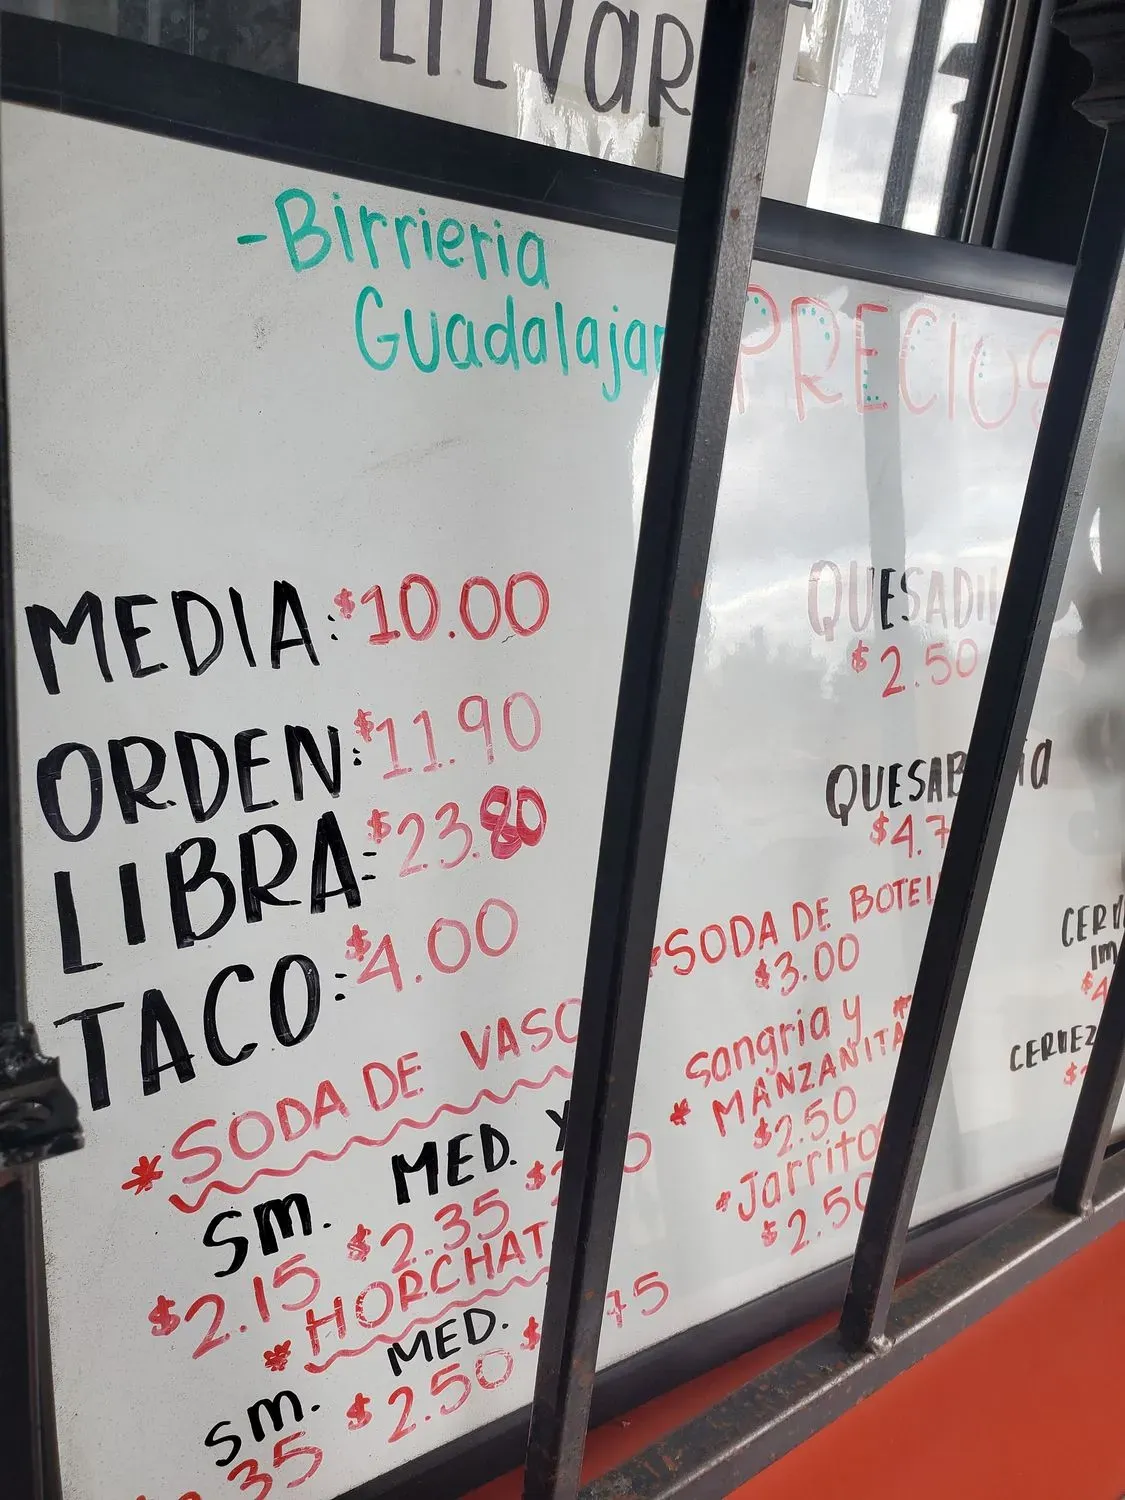 LLEVAR
-Birrieria
Guadalajar
PRECIOS
MEDIA: $10.00
ORDEN: $11.90
LIBRA: $23.80
TACO: $4.00
*SODA DE VASO
sm. MED.
$2.15 $2.35
*HORCHAT
sm. MED.
35 $2.50 $ 75
QUESADIL
$2.50
QUESAB ia
$4.7
*SODA DE BOTEL
$3.00
*Sangria y
*MANZANITA
$2.50
*Jarritos
$2.50
CERV
Im
$4
CERVEZ
$